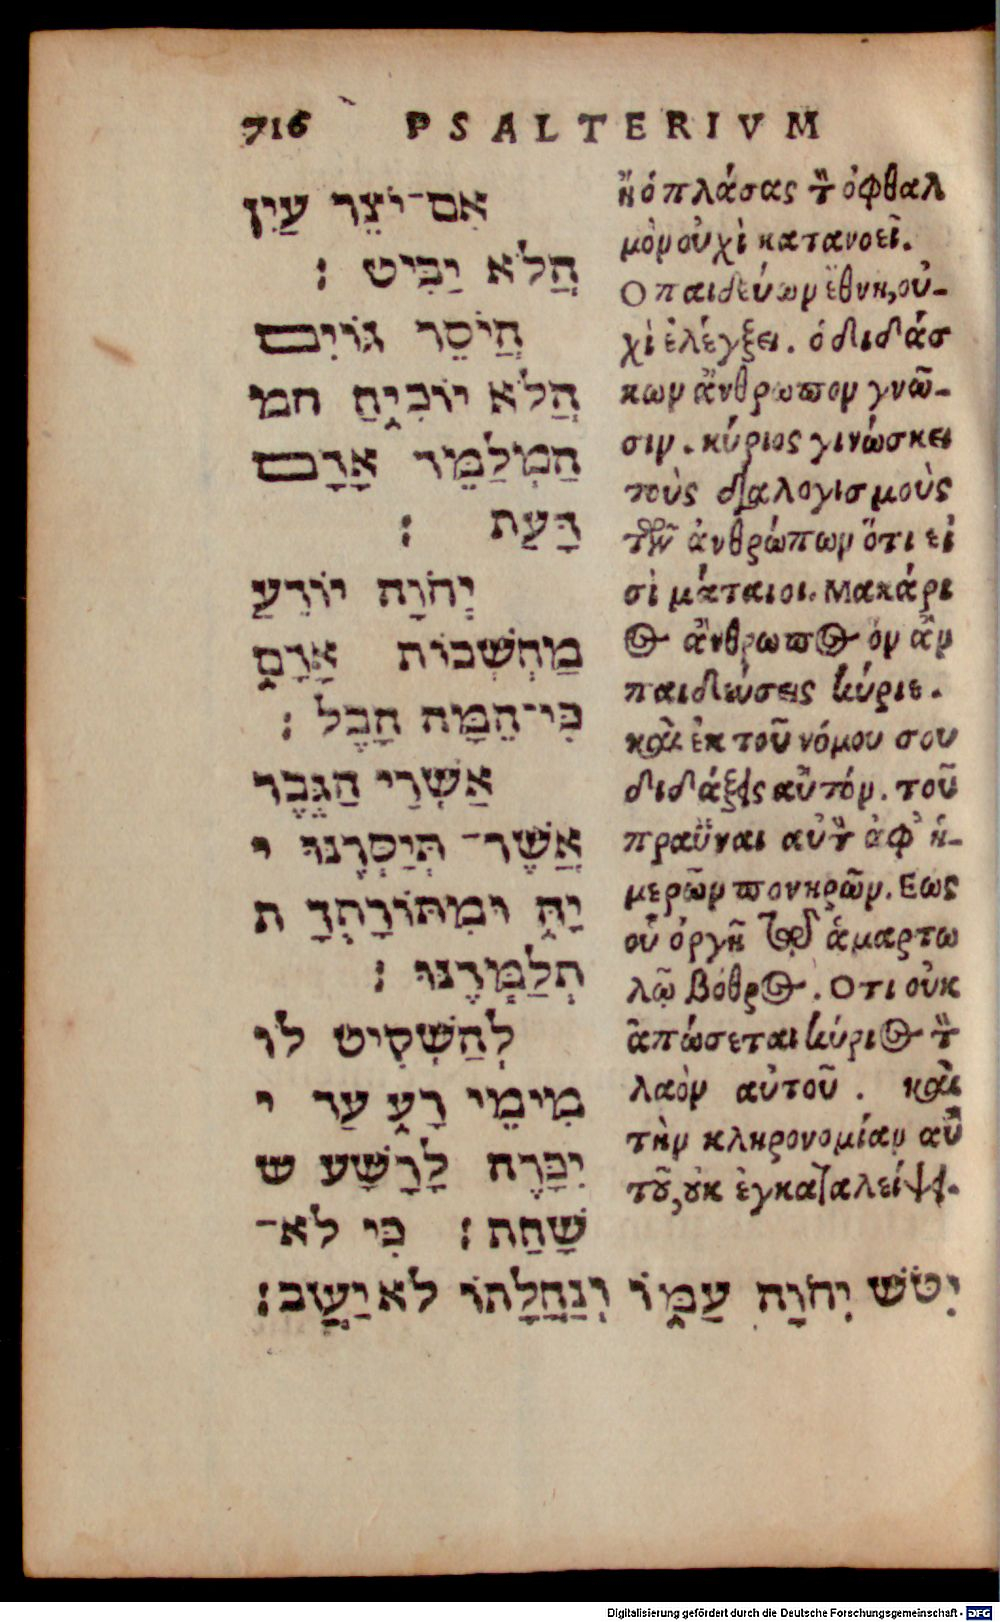 716 PSALTERIVM
אִם־יֹצֵר עַיִן
הֲלֹא יַבִּיט ׃
הֲיֹסֵר גּוֹיִם
הֲלֹא יוֹכִיחַ חמ
הַמְלַמֵּד אָדָם
דָּעַת ׃
יְהֹוָה יוֹדֵעַ
מַחְשְׁבוֹת אָדָם
כִּי־הֵמָּה הָבֶל ׃
אַשְׁרֵי הַגֶּבֶר
אֲשֶׁר־ תְּיַסְּרֶנּוּ י
יָּהּ וּמִתּוֹרָתְךָ ת
תְלַמְּדֶנּוּ ׃
לְהַשְׁקִיט לוֹ
מִימֵי רָע עַד י
יִכָּרֶה לָרָשָׁע ש
שָׁחַת ׃ כִּי לֹא־
יִטֹּשׁ יְהֹוָה עַמּוֹ וְנַחֲלָתוֹ לֹא יַעֲזֹב ׃
ἢ ὁ πλάσας τὸν ὀφθαλ
μὸν οὐχὶ κατανοεῖ.
Ο παιδεύων ἔθνη, οὐ-
χὶ ἐλέγξει. ὁ διδάσ
κων ἄνθρωπον γνῶ-
σιν. κύριος γινώσκει
τοὺς διαλογισμοὺς
τῶν ἀνθρώπων ὅτι εἰ
σὶ μάταιοι. Μακάρι
ος ἄνθρωπος ὃν ἂν
παιδεύσεις κύριε.
καὶ ἐκ τοῦ νόμου σου
διδάξεις αὐτόν. τοῦ
πραῧναι αὐτὸν ἀφ᾽ ἡ-
μερῶν πονηρῶν. Εως
οὗ ὀργῆ τῷ ἁμαρτω
λῷ βόθρος. Οτι οὐκ
ἀπώσεται κύριος τὸν
λαὸν αὐτοῦ. καὶ
τὴν κληρονομίαν αὐ
τοῦ, οὐκ ἐγκαταλείψει.
Digitalisierung gefördert durch die Deutsche Forschungsgemeinschaft - DFG